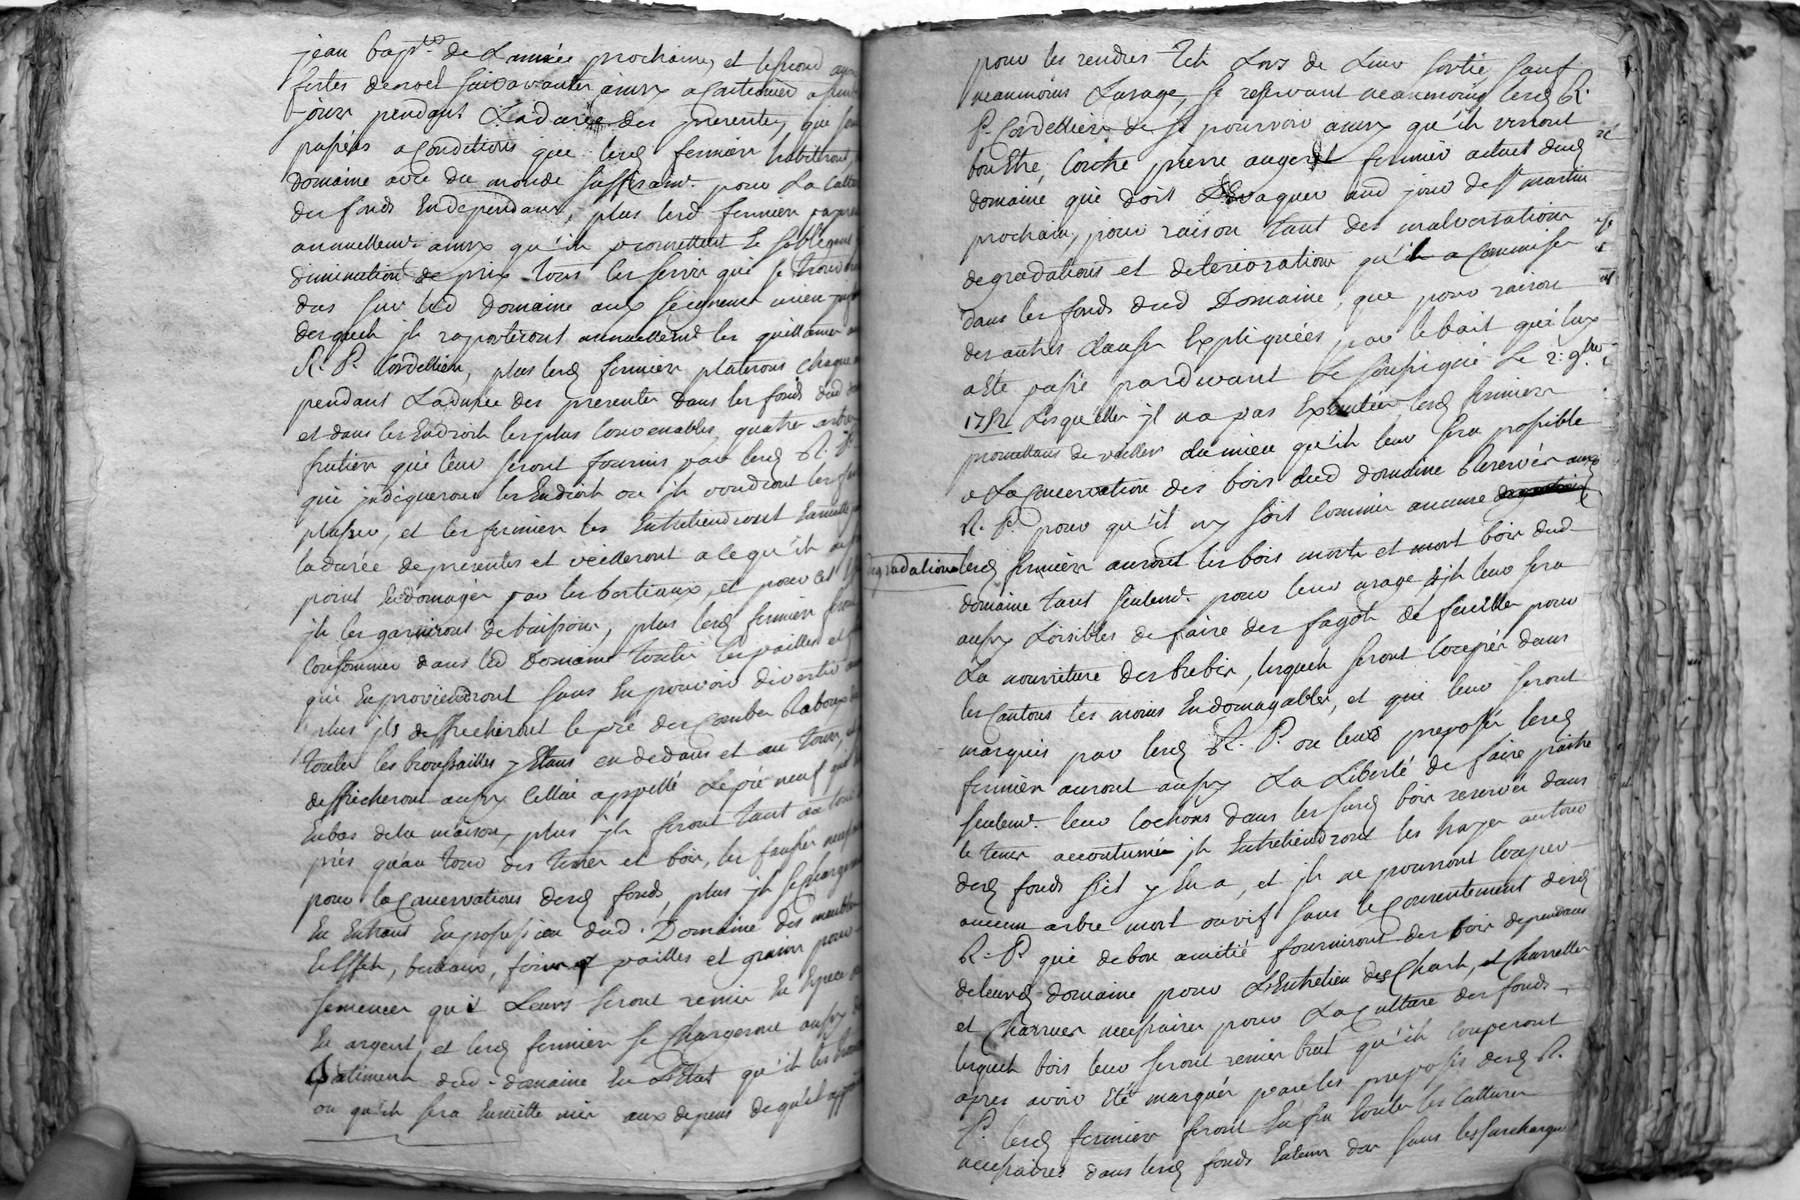 jean bap.te de Lannée prochaine, et le second aux
festes de noel suivantes ainsy a Continuer
jours pendant La durée des presentes, qui sont
passées a Conditions que lesd fermiers habiteront
domaine avec du monde suffisamt. pour La Cultu
des fonds En dependans, plus lesd fermiers
annuellemt. ainsy qu'ils promettent
diminution de prix tous les servis qui se trouv
dus sur led domaine aux seigneurs
desquels jls raporteront annuellemt les quittances
R. P. Cordelliers, plus lesd fermiers planterons chaque
pendant La durée des presentes dans les fonds dud
et dans les Endroits les plus Convenables, quatre arbres
fruitiers qui leur seront fournis par lesd R. P.
qui jndiqueront les Endroits ou jls voudront les
placer, et les fermiers les Entretiendront Ensuitte
la durée de presentes et veilleront a ce qu'ils
point Endomagés par les bestiaux, et pour cet
jls les garniront de buissons, plus lesd fermiers feront
Consommer dans led domaine toutes les pailles et
qui En proviendront sans En pouvoir divertir
plus jls deffricheront le pré des Combes
toutes les broussailles y Etans en dedans et au tour,
deffricheront aussy Cellui appellé Le pré neuf qui
Enbas de la maison, plus jls feront tant au tour
prés qu'au tour des terres et bois, les fossés
pour la Conservations desd fonds, plus jls se Chargeront
En Entrant En possession dud. Domaine des meubles
Effets, bestiaux, foins et pailles et grains pour
semences qui Leurs seront remis En Espece
En argent, et lesd fermiers se Chargeront aussy
Batimens dud. domaine En L'Etat qu'ils les
ou qu'ils sera Ensuitte mis aux depens de qu'il app
pour les rendres Tels Lors de Leur sortie, sauf
neanmoins Lusage, se reservant neanmoins lesd R.
P. Cordelliers de se pourvoir ainsy qu'ils verront
bon Etre, Contre pierre auger fermier actuel dud
domaine qui doit Evaquer aud jour de St martin
prochain, pour raison tant des malversations
degradations et deteriorations qu'il a Commises
dans les fonds dud Domaine, que pour raison
des autres clauses Expliquées par le bail qui luy
a Eté passé pardevant Le soussigné Le 2: 9bre
1752 Lesquelles jl na pas Executées, lesd fermiers
promettans de veiller du mieux qu'ils leur sera possible
a La Conservation des bois dud domaine Reservés aux
R. P. pour qu'il ny soit Commis aucune
degradations lesd fermiers auront les bois morts et mort bois dud
domaine tant seulemt. pour leur usage jls leur sera
aussy Loisibles de faire des fagots de feuilles pour
La nourriture des brebis, lesquels seront Coupés dans
les Cantons les moins Endomagables, et qui leur seront
marqués par lesd R. P. ou leurs preposés lesd
fermiers auront aussy La Liberté de faire paitre
seulemt. leurs Cochons dans les susd bois reservés dans
le tems accoutumé jls Entretiendront les hayes autour
desd fonds s'il y En a, et jls ne pourront Couper
aucun arbre mort ou vif sans le Consentement desd
R. P. qui de bon amitié fourniront des bois dependans
de leurd. domaine pour L'Entretien des Chars, et Charrettes
et Charrues necessaires pour La Culture des fonds,
lesquels bois leur seront remis brut qu'ils Couperont
apres avoir Eté marqués par les preposés desd R.
P. lesd fermiers feront En fin toutes les Cultures
necessaires dans lesd fonds sans les surcharger